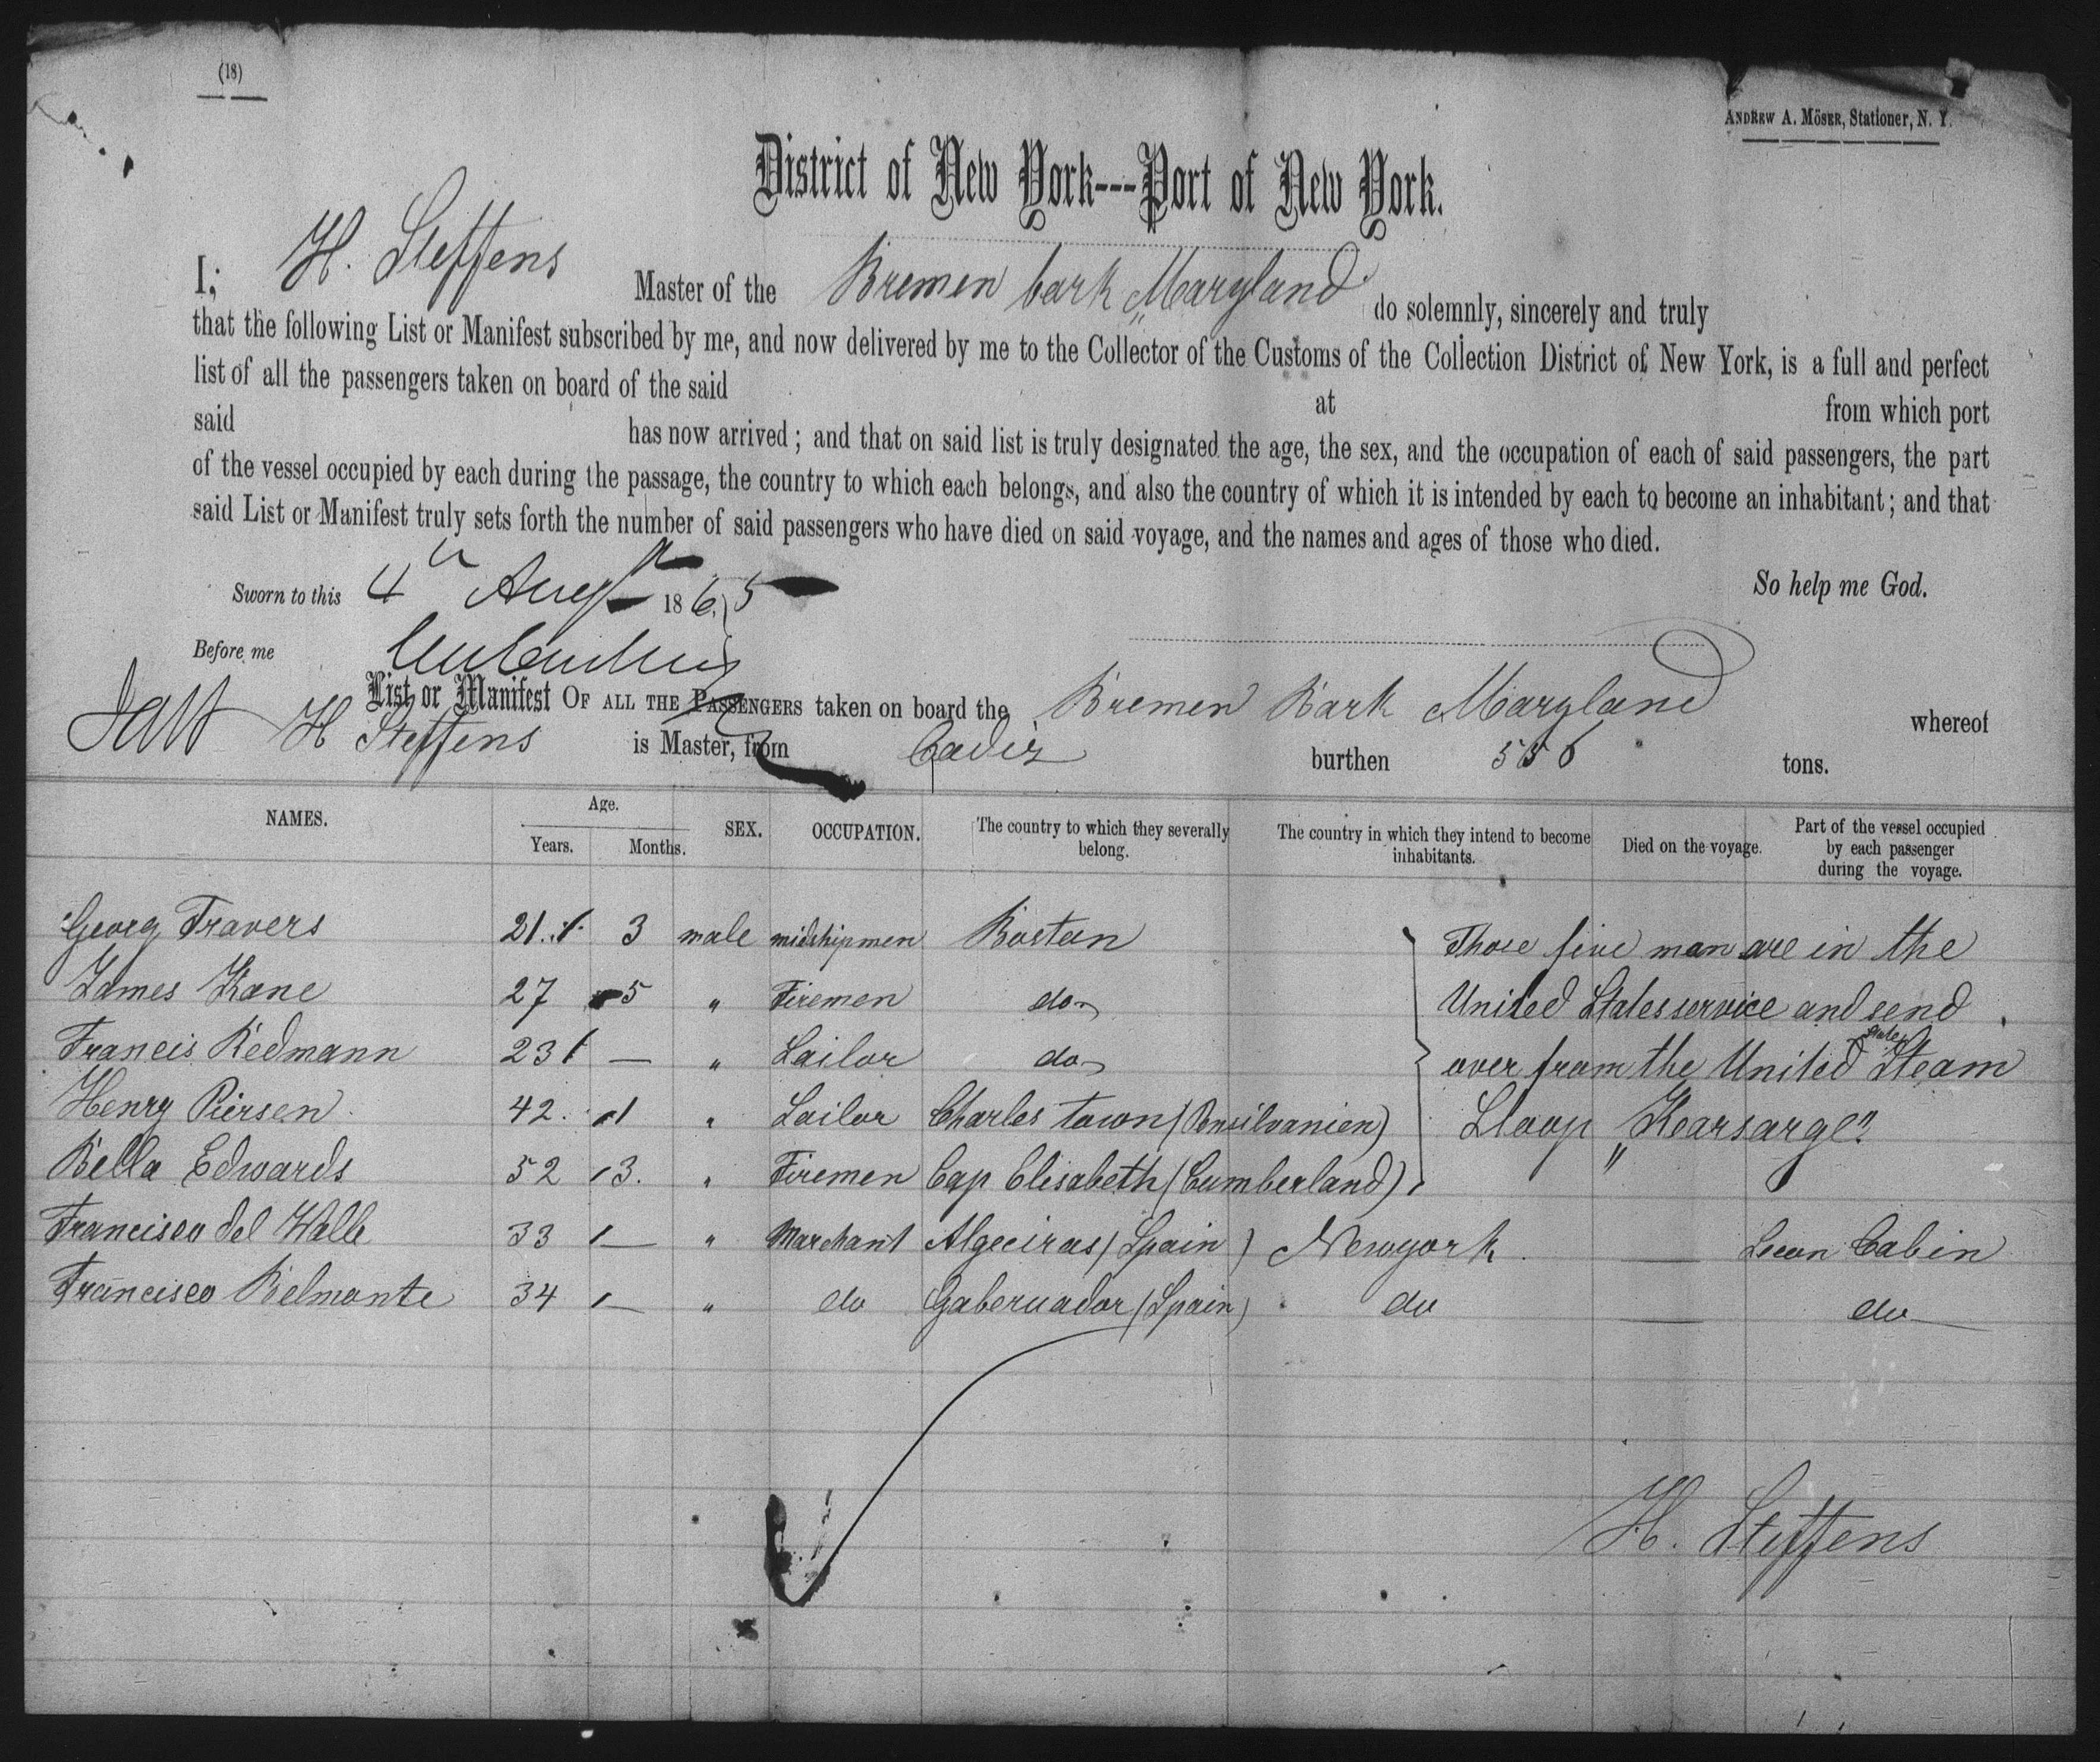 (18)
ANDREW A. MÖSER, Stationer, N. Y.
District of New York---Port of New York.
I; H. Steffens Master of the Bremen bark „Maryland do solemnly, sincerely and truly
that the following List or Manifest subscribed by me, and now delivered by me to the Collector of the Customs of the Collection District of New York, is a full and perfect
list of all the passengers taken on board of the said at from which port
said has now arrived; and that on said list is truly designated the age, the sex, and the occupation of each of said passengers, the part
of the vessel occupied by each during the passage, the country to which each belongs, and also the country of which it is intended by each to become an inhabitant; and that
said List or Manifest truly sets forth the number of said passengers who have died on said voyage, and the names and ages of those who died.
So help me God.
Sworn to this 4th Augst 1865
Before me
List or Manifest OF ALL THE PASSENGERS taken on board the Bremen Bark Maryland whereof
H Steffens is Master, from Cadiz burthen 556 tons.
NAMES. Age. Years. Months. SEX. OCCUPATION. The country to which they severally belong. The country in which they intend to become inhabitants. Died on the voyage. Part of the vessel occupied by each passenger during the voyage.
Georg Travers 21 3 male midshipmen Bostan Those five man are in the
James Kane 27 5 " Firemen do United States service and send
Francis Redmann 23 — " Sailor do over from the United States Steam
Henry Piersen 42 1 " Sailor Charles town (Pensilvanien) Sloop „Kearsarge"
Bella Edwards 52 3. " Firemen Cap Elisabeth (Cumberland)
Francisco del Valle 33 — " Marchant Algeciras (Spain) Newyork — Cabin
Francisco Belmonte 34 — " do Gabernador (Spain) do — do
H. Steffens